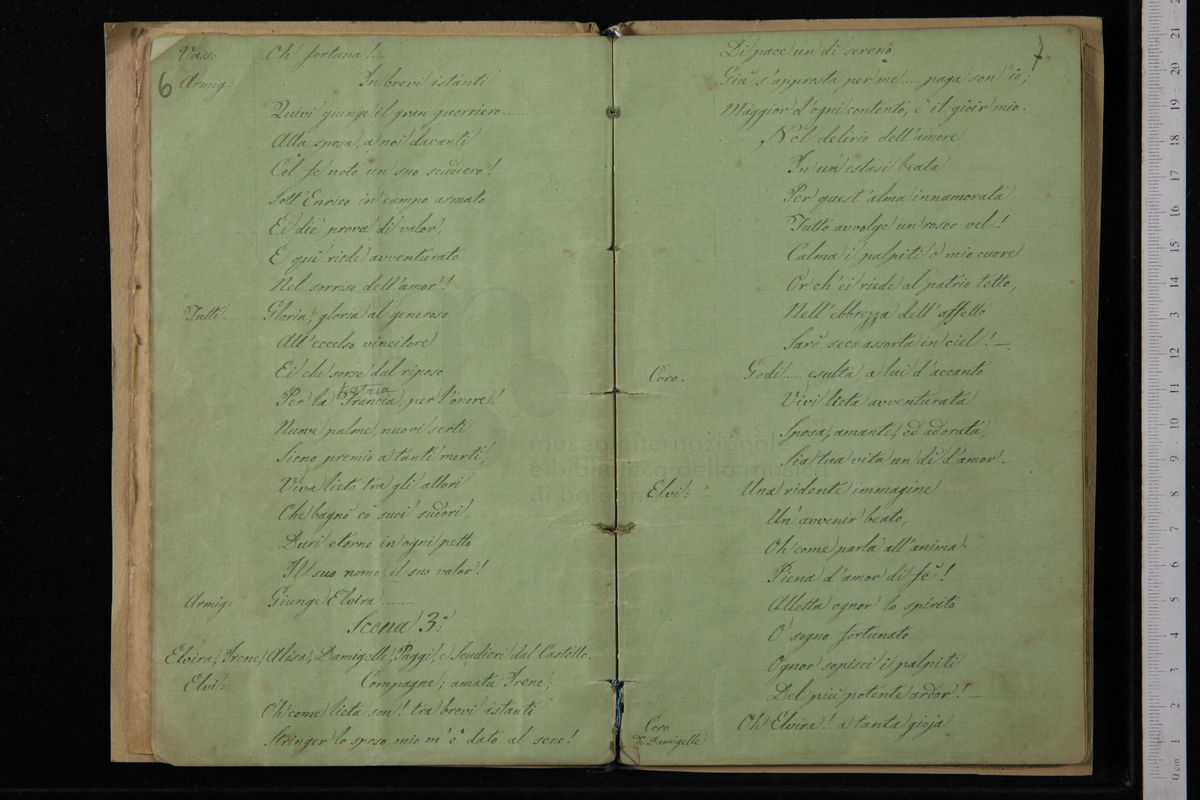 6
Vass: Oh fortuna!...
Armig: In brevi istanti
Quivi giunge il gran guerriero......
Alla sposa, a noi davanti
Cel fe' noto un suo scudiero!
Sott' Enrico in campo armato
Ei diè prova di valor,
E qui riede avventurato
Nel sorriso dell'amor!
Tutti. Gloria, gloria al generoso
All'eccelso vincitore
Ei che sorse dal riposo
patria
Per la Francia, per l'onore!
Nuove palme, nuovi serti
Sieno premio a tanti merti,
Viva lieto tra gli allori
Che bagnò co' suoi sudori.
Duri eterno in ogni petto
Il suo nome, il suo valor!
Armig: Giunge Elvira ......
Scena 3.a
Elvira, Irene, Alisa, Damigelle, Paggi, e Scudieri dal Castello.
Elvi: Compagne; amata Irene;
Oh come lieta son! tra brevi istanti
Stringer lo sposo mio m'è dato al seno!
7
Di pace un dì sereno
Già s'appresta per me.... paga son'io;
Maggior d'ogni contento, è il gioir mio.
Nel delirio dell'amore
In un'estasi beata
Per quest'alma innamorata
Tutto avvolge un roseo vel!
Calma i palpiti o mio cuore
Or ch'ei riede al patrio tetto,
Nell'ebbrezza dell'affetto
Sarò seco assorta in ciel! —
Coro. Godi.... esulta, a lui d'accanto
Vivi lieta avventurata
Sposa, amante, ed adorata,
Sia tua vita un dì d'amor.
Elvi: Una ridente immagine
Un'avvenir beato,
Oh come parla all'anima
Piena d'amor di fè!
Alletta ognor lo spirito
O sogno fortunato
Ognor sopisci i palpiti
Del più potente ardor! —
Coro Oh Elvira! a tanta gioja
di Damigelle
museo internazionale
e biblioteca della musica
di bologna